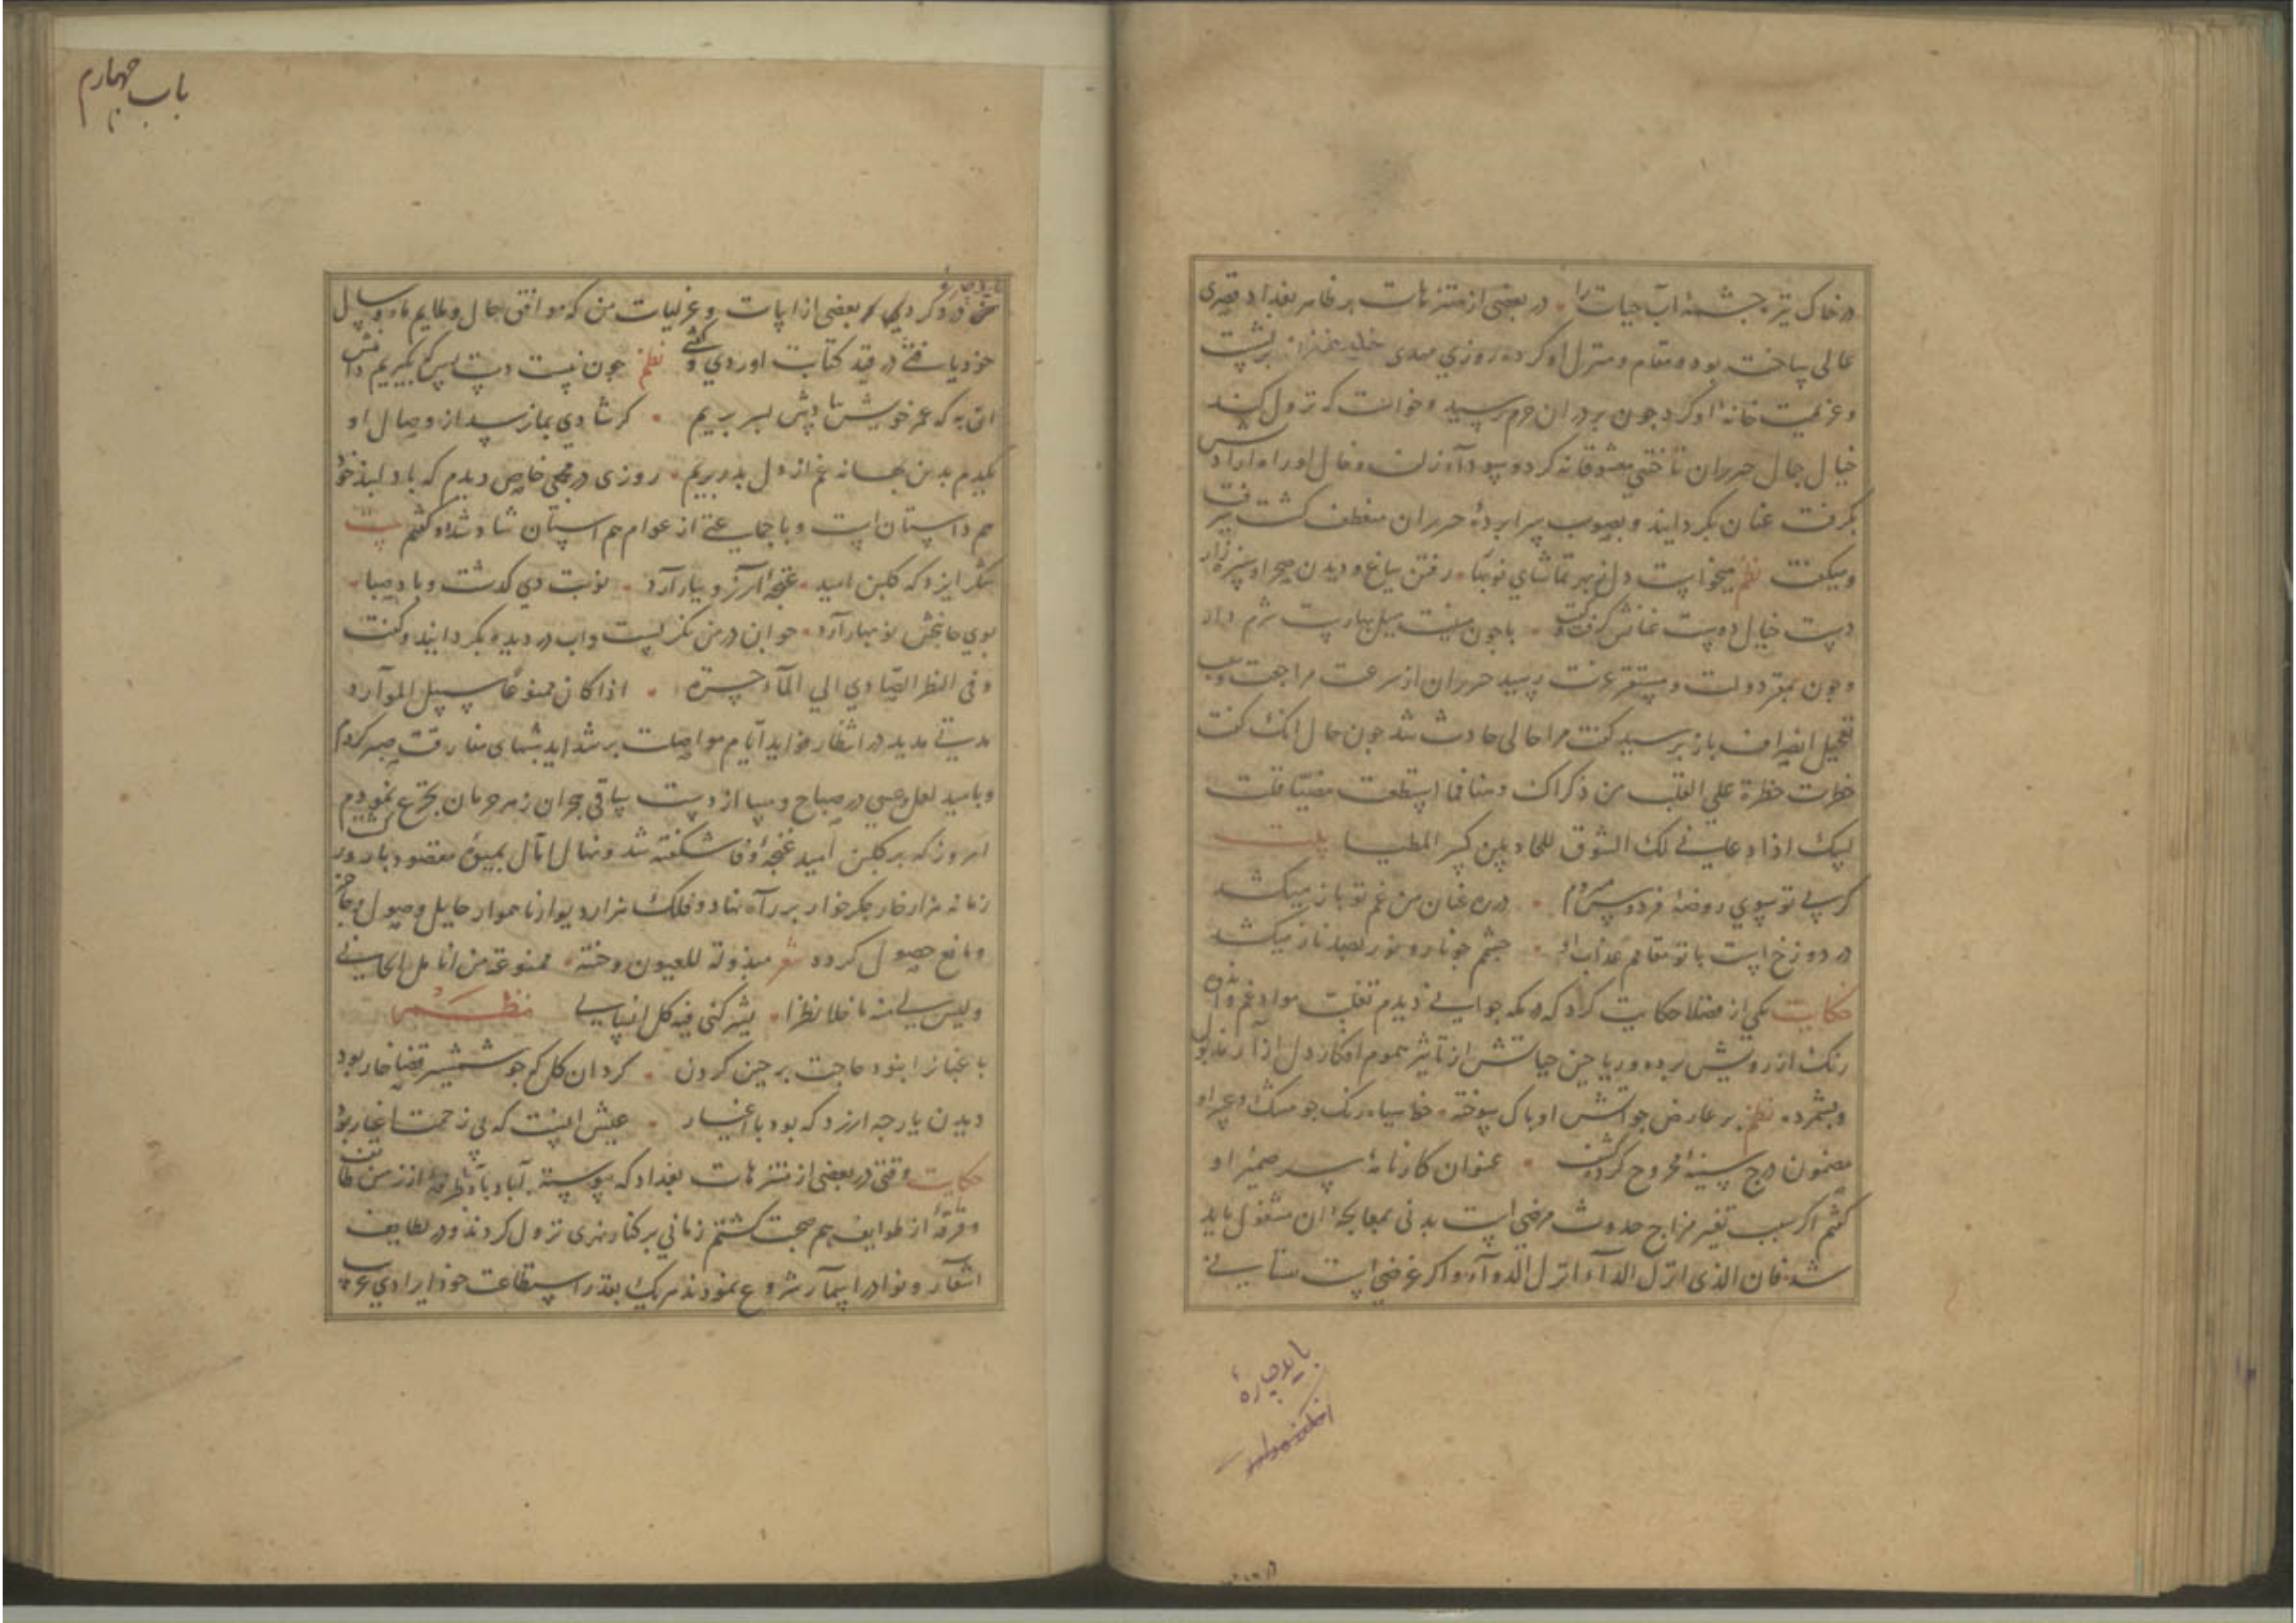 در خاک تیز چشمهٔ آب حیات را در بعضی از متنزهات بر ظاهر بغداد قصری
عالی ساخته بود و مقام و منزل او کرده روزی مهدی بر نشست
و عزیمت خانهٔ او کرد چون بر در ان حرم رسید و خواست که نزول کند
خیال جمال حریران تاختنی معشوقانه کرد و سودآء زلف و خال او را
بگرفت عنان بگردانید و بصوب سرابردهٔ حریران منعطف کشت
و میکفت نظم میخواست دلم بهر تماشای نوبهار رفتن بباغ و دیدن صحرا و سبزه زار
دست خیال دوست عنانش گرفت و گفت با چون منیت میل بهارست شرم دار
و چون بمقر دولت و مستقر عزت رسید حریران از سرعت مراجعت و سبب
تعجیل انصراف باز پرسید کفت مرا حالی حادث شد چون حال انک کفت
خطرت خطرة علی القلب من ذکراک وهنا فما استطعت مضیا قلت
لبیک اذا دعانی لک الشوق للحادیین کر المطیا بیت
کر بی تو سوی روضهٔ فردوس میروم در ره عنان من غم تو باز میکشد
در دوزخ است با تو مقامم عذاب او چشم چو نار و نور بصد ناز میکشد
حکایت یکی از فضلا حکایت کرد که در مکه جوانی دیدم تغلب مواد غم و اندوه
رنک از رویش برده و ریاحین حیاتش از تاثیر سموم افکار دل ازار ذبول
و پشمرده نظم بر عارض چو آتش او باک سوخته خط سیاه رنک چو مشک و عبیر او
مضمون درج سینهٔ مجروح کرده کشف عنوان کارنامهٔ سر ضمیر او
کفتم اکر سبب تغیر مزاج حدوث مرضی است بدنی بمعالجهٔ ان مشغول باید
شد فان الذی انزل الدآء انزل الدوآء و اکر عرضی است نفسانی
باید چارهٔ
باب چهارم
بعضی از ابیات و غزلیات من که موافق حال و ملایم
خود یافتی در قید کتابت اوردی و کفتی نظم چون نیست دست رس که بگیریم دامنش
ان به که عمر خویش بیادش بسر بریم کر شادیی بما نرسد از وصال او
یکدم بدین بهانه غم از دل بدر بریم روزی در مجمعی خاص دیدم که با دلبند خود
هم داستان است و با جماعتی از عوام هم استان شاد شدم و کفتم بیت
شکر ایزد که کلبن امید غنچهٔ آرزو ببار آرد نوبت دی کذشت و باد صبا
بوی جانبخش نوبهار آرد جوان در من نکریست و اب در دیده بکردانید و کفت
و فی النظر الصادی الی المآء حسرة اذا کان ممنوعا سبیل الموارد
مدتی مدید در انتظار فواید ایام مواصلت بر شداید شبهای مفارقت صبر کردم
و بامید لعل و عسی در صباح و مسا از دست ساقی هجران زهر حرمان تجرع نمودم
امروز که بر کلبن امید غنچهٔ وفا شکفته شد و نهال امال بمیوهٔ مقصود بارور
زمانه هزار خار جکر خوار بر راه نهاد و فلک هزار دیوار ناهموار حایل وصول
و مانع حصول کرد شعر مبذولة للعیون وجنته ممنوعة من انامل الجانی
و لیس لی منه ما خلا نظرا یشرکنی فیه کل انسان نظم
باغبان را نبود حاجت پرچین کردن کرد ان کل که چو شمشیر قضا خار بود
دیدن یار چه ارزد که بود با اغیار عیش انست که بی زحمت اغیار بود
حکایت وقتی در بعضی از متنزهات بغداد که پیوسته آباد باد طرفهٔ از زمن
و فرقهٔ از طوایف هم صحبت کشتم زمانی بر کنار نهری نزول کردند و در لطایف
اشعار و نوادر اسمار شروع نمودند هریک بقدر استطاعت خود ایرادی